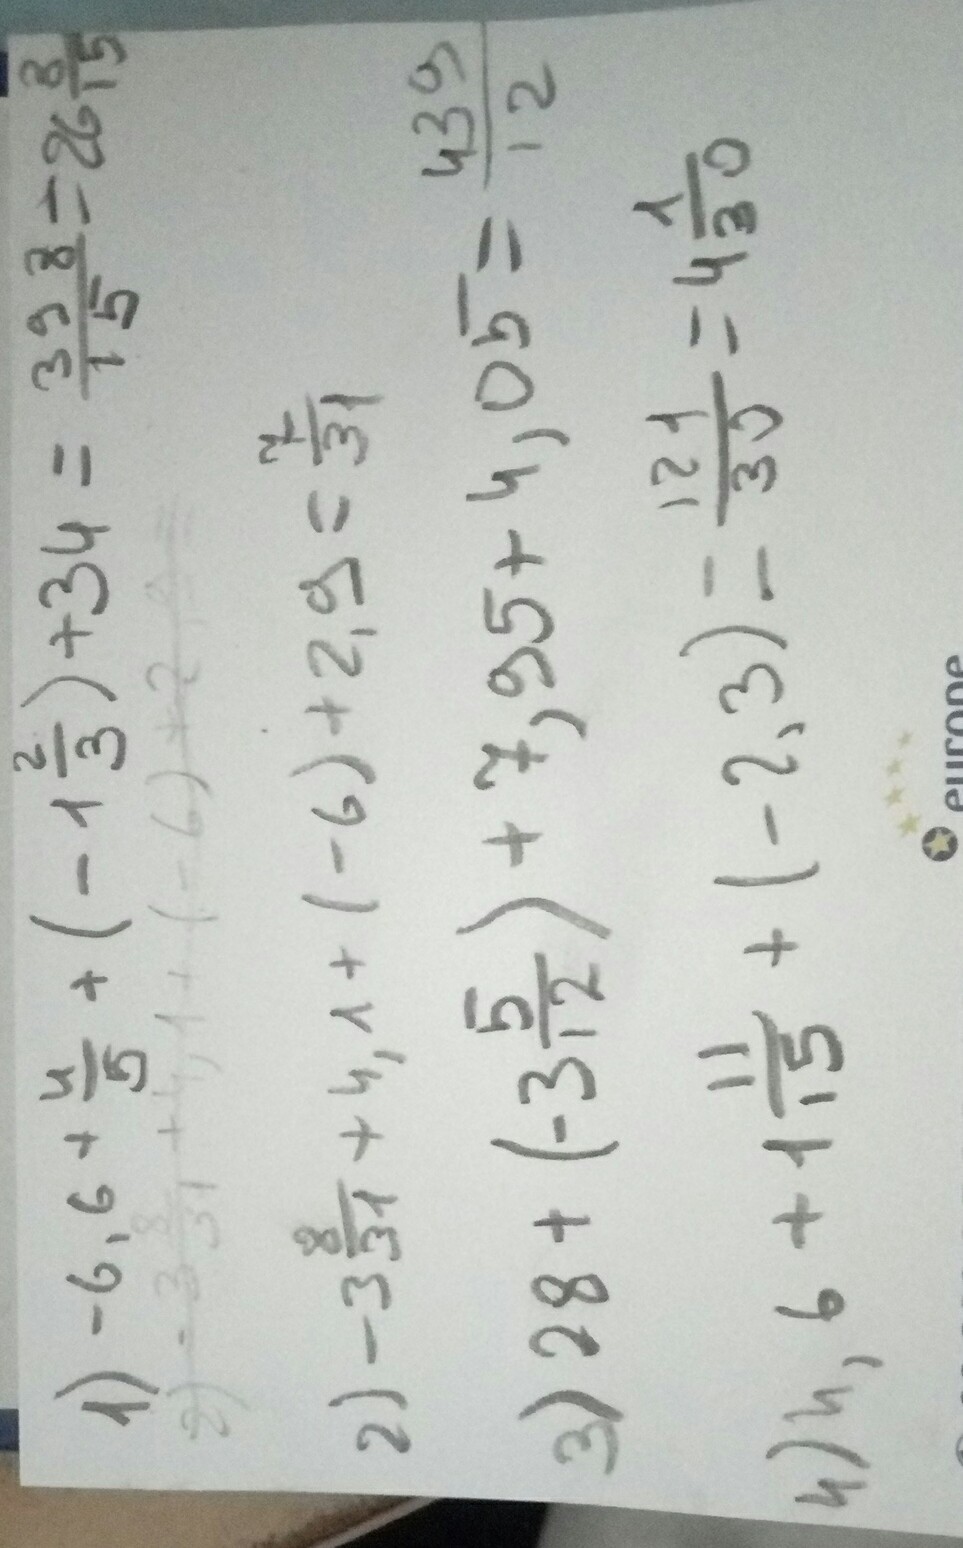 1) -6,6 + 4/5 + (-1 2/3) + 34 = 398/15 = 26 8/15
2) -3 8/31 + 4,1 + (-6) + 2,9 =
2) -3 8/31 + 4,1 + (-6) + 2,9 = 7/31
3) 28 + (-3 5/12) + 7,95 + 4,05 = 439/12
4) 4,6 + 1 11/15 + (-2,3) = 121/30 = 4 1/30
europe